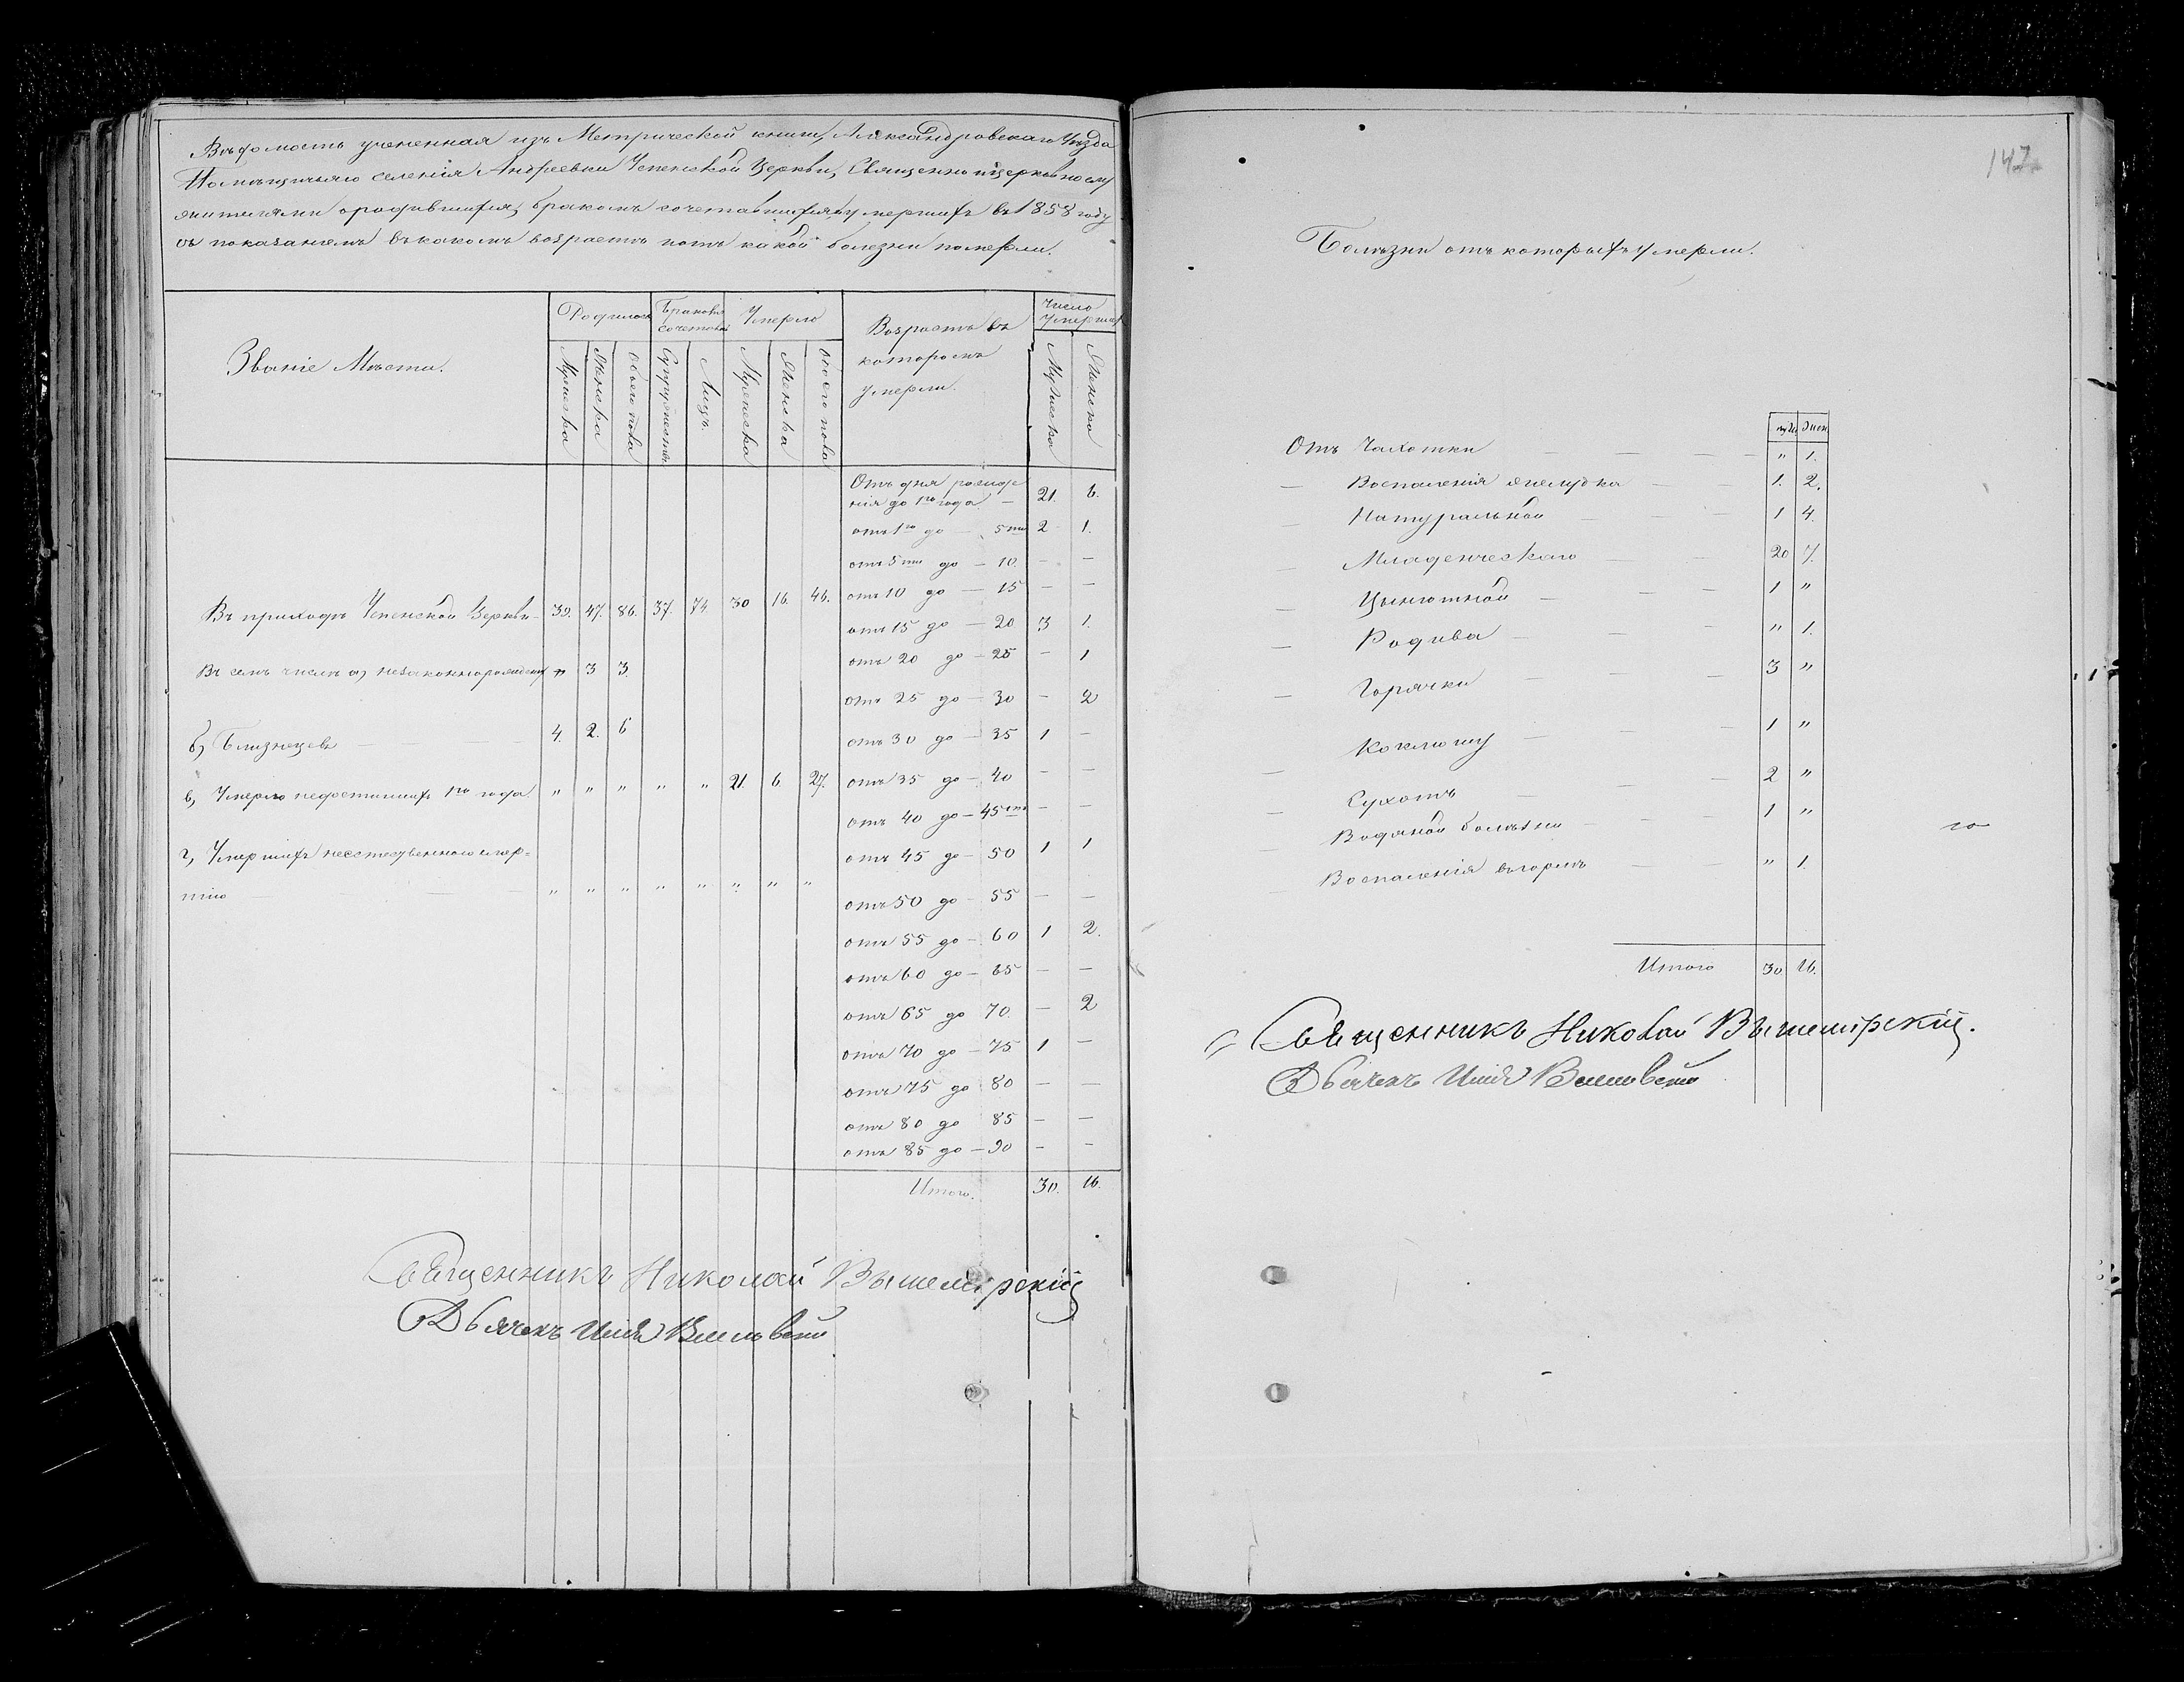 Вѣдомость учененная изъ Метрической книги, Александровскаго Уѣзда
Помѣщичьяго селенія Андреевки Успенской Церкви, Священно и церковнослу
жителями о родившихся, бракомъ сочетавшихся и умершихъ въ 1858 году
съ показаніемъ въ какомъ возрастѣ и отъ какой болезни померли.
Званіе Мѣста.
Родилось
Браковъ сочетовал
Умерло
Возрастъ въ которомъ умерли.
Число Умерших
Мужеска
Женска
Обоего пола
Супружествъ
Лицъ.
Мужеска
Женска
Обоего пола
Мужеска
Женска
Отъ дня рожде
нія до 1го года — 21. 6.
отъ 1го до — 5ти 2 1.
отъ 5ти до — 10. — —
отъ 10 до — 15 — —
Въ приходѣ Успенской Церкви — 39. 47. 86. 37. 74. 30 16. 46.
отъ 15 до — 20 3 1.
Въ семъ числѣ а) незаконнорожденых " 3 3.
отъ 20 до — 25 — 1
отъ 25 до — 30 — 2
б) Близнецевъ — 4. 2. 6
отъ 30 до — 35 1 —
в) Умерло недостигшихъ 1го года. " " " " " 21. 6 27.
отъ 35 до — 40 — —
отъ 40 до — 45ти — —
г) Умершихъ неестественною смер=
тію — " " " " " " " "
отъ 45 до — 50 1 1
отъ 50 до — 55 — —
отъ 55 до — 60 1 2.
отъ 60 до — 65 — —
отъ 65 до 70. — 2
отъ 70 до — 75 1 —
отъ 75 до 80 — —
отъ 80 до 85 — —
отъ 85 до — 90 — —
Итого. 30. 16.
Священникъ Николай Вышемірскій
Дьячекъ Илія
147
Болѣзни отъ которыхъ умерли.
муж жен
Отъ Чахотки — " 1.
— Воспаленія желудка — 1. 2.
— Натуральной — 1 4.
— Младенческаго — 20 7.
— Цынготной — 1 "
— Родива — " 1.
— Горячки — 3 "
— Коклюшу — 1 "
— Сухотъ — 2 "
— Водяной болѣзни — 1 "
— Воспаленія въ горлѣ — " 1.
Итого 30 16.
Священникъ Николай Вышемірскій.
Дьячекъ Илія